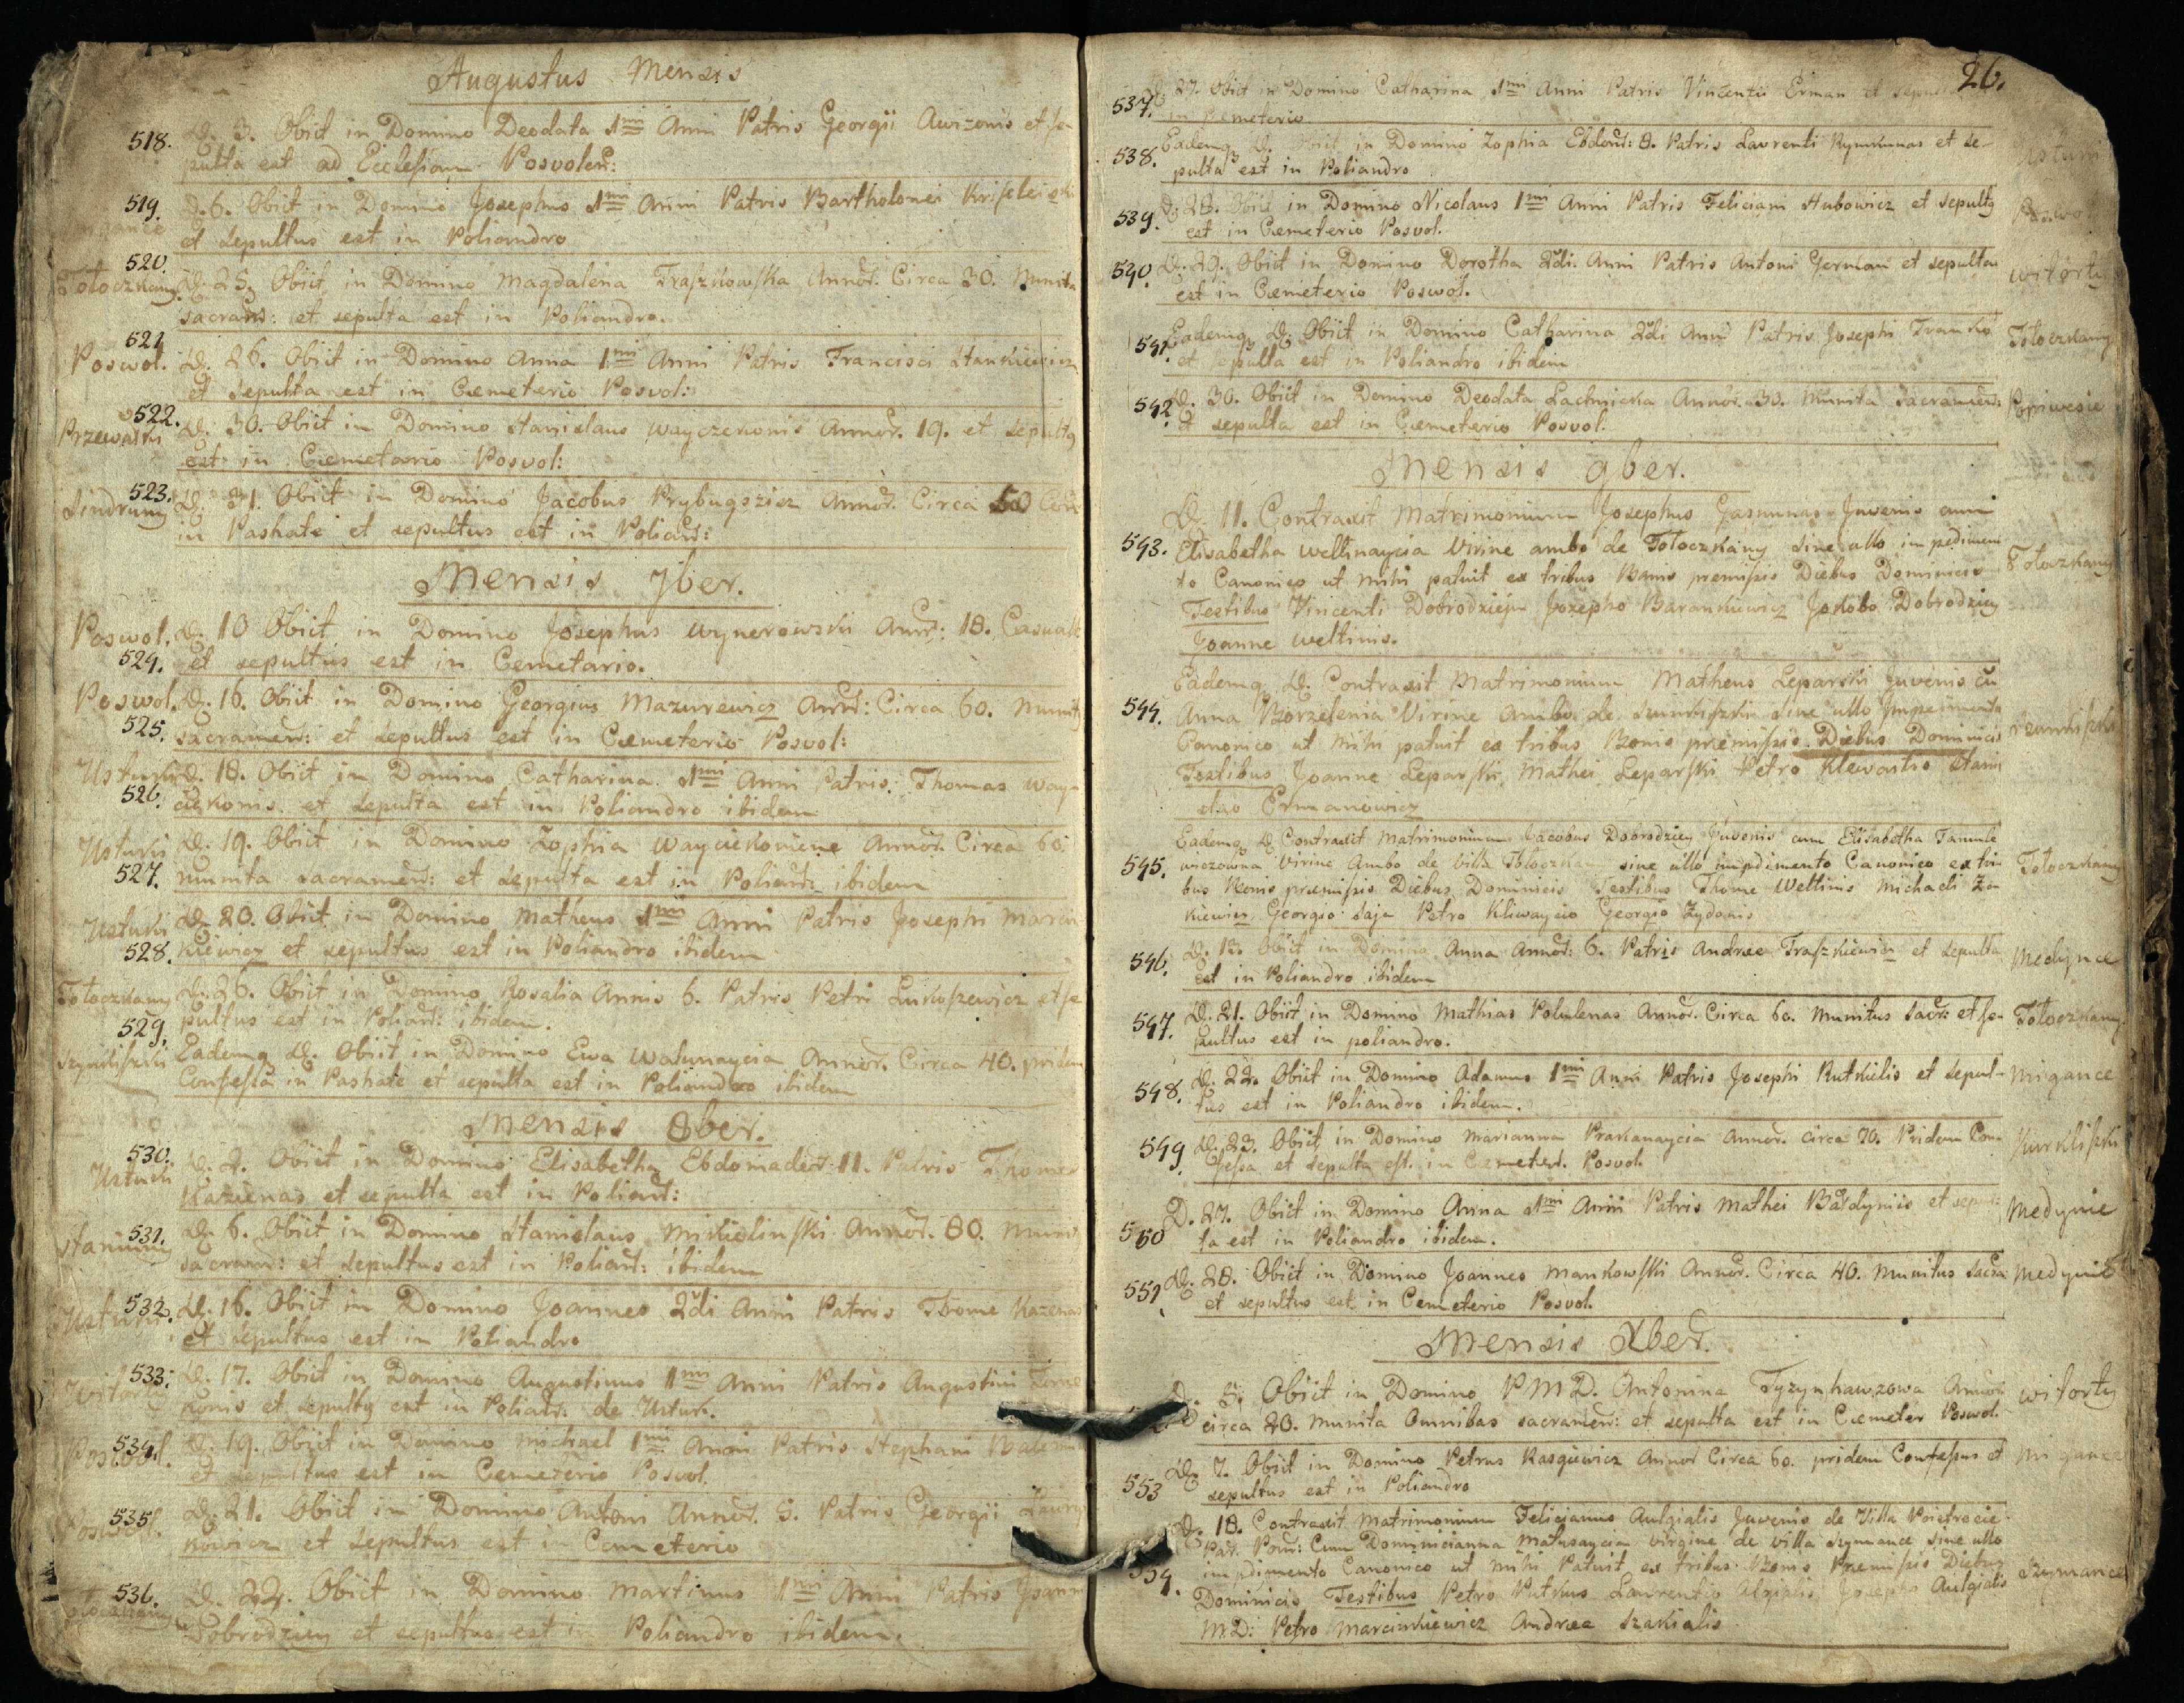 Augustus Mensis
518. D. 3. Obiit in Domino Deodata 1mi Anni Patris Georgii Awizonis et se-
pulta est ad Ecclesiam Posvolen:
519. D. 6. Obiit in Domino Josephus 1mi Anni Patris Bartholomei
et sepultus est in Poliandro
520. Tołoczkany D. 25. Obiit in Domino Magdalena Traszkowska Annor. Circa 30. Munita
sacram: et sepulta est in Poliandro.
521 Poswol. D. 26. Obiit in Domino Anna 1mi Anni Patris Francisci Stankiewicz
et sepulta est in Cæmeterio Posvol:
522. D. 30. Obiit in Domino Stanislaus Wayczekonis Annor. 19. et sepultq
est in Cæmetario Posvol:
523. D. 31. Obiit in Domino Jacobus Prybugszicz Annor. Circa 50
in Pashate et sepultus est in Poliand:
Mensis 7ber.
Poswol. 524. D. 10 Obiit in Domino Josephus Wynerowski Annor: 18.
et sepultus est in Cemetario.
Poswol. 525. D. 16. Obiit in Domino Georgius Mazurewicz Annor: Circa 60.
sacramen: et sepultus est in Cæmeterio Posvol:
Usturki 526. D. 18. Obiit in Domino Catharina 1mi Anni Patris Thomas Way-
ciekonis et sepulta est in Poliandro ibidem
Usturki 527. D. 19. Obiit in Domino Zophia Wayciekoniene Annor. Circa 60.
munita sacramen: et sepulta est in Poliand: ibidem
Usturki 528. D. 20. Obiit in Domino Matheus 1mi Anni Patris Josephi Marcin
kiewicz et sepultus est in Poliandro ibidem
Tołoczkany 529. D. 26. Obiit in Domino Rosalia Annis 6. Patris Petri Lukaszewicz et se
pultus est in Poliand: ibidem.
Eademq D. Obiit in Domino Ewa Watunaycia Annor. Circa 40. pridem
Confessa in Pashate et sepulta est in Poliandro ibidem
Mensis 8ber.
530. Usturki D. 2. Obiit in Domino Elisabetha Ebdomader: 11. Patris Thomæ
Kazienas et sepulta est in Poliand:
531. D. 6. Obiit in Domino Stanislaus Mikielinski Annor. 80.
sacram: et sepultus est in Poliand: ibidem
532. Usturki. D. 16. Obiit in Domino Joannes 2di Anni Patris Thome Kazenas
et sepultus est in Poliandro
533. Witorty D. 17. Obiit in Domino Augustinus 1mi Anni Patris Augustini
konis et sepultq est in Poliand: de Usturk.
534. Poswol. D. 19. Obiit in Domino Michael 1mi Anni Patris Stephani
et sepultus est in Cemeterio Posvol.
535. Poswol. D. 21. Obiit in Domino Antoni Annor. 5. Patris Georgii
kowicz et sepultus est in Cemeterio
536. Tołoczkany D. 22. Obiit in Domino Martinus 1mi Anni Patris Joanni
Dobrodziey et sepultus est in Poliandro ibidem.
26.
537. D. 27. Obiit in Domino Catharina 1mi Anni Patris Vincentii Erman et
in Cemeterio
538. Eademq D. Obiit in Domino Zophia Ebdom: 8. Patris Laurenti Rymkunas et se-
pulta est in Poliandro
539. D. 28. Obiit in Domino Nicolaus 1mi Anni Patris Feliciani Stubowicz et sepultq
est in Cæmeterio Posvol.
540. D. 29. Obiit in Domino Dorotha 2di. Anni Patris Antoni German et sepulta Witorty
est in Cæmeterio Poswol.
541. Eademq D. Obiit in Domino Catharina 2di Anni Patris Josephi Tołoczkany
et sepulta est in Poliandro ibidem
542. D. 30. Obiit in Domino Deodata Lachnicka Annor. 30. Munita Sacramen: Popiwesie
et sepulta est in Cæmeterio Posvol.
Mensis 9ber.
D. 11. Contraxit Matrimonium Josephus Gasiunas Juvenis cum
543. Elisabetha Weltinaycia Virine ambo de Tołoczkany sine ullo impedimen Tołoczkany
to Canonico ut mihi patuit ex tribus Banis premissis Diebus Dominicis
Testibus Vincenti Dobrodzieju Josepho Barankiewicz Jakobo Dobrodziey
Joanne Weltinis.
Eademq D. Contraxit Matrimonium Matheus Leparski Juvenis cu
544. Anna Borzelenia Virine Ambo de sine ullo Impedimento
Canonico ut Mihi patuit ex tribus Bonis premissis Diebus Dominicis
Testibus Joanne Leparski Mathei Leparski Petro Klewastio Stani
slao Ermanowicz
Eademq D. Contraxit Matrimonium Jacobus Dobrodziey Juvenis cum Elisabetha Tamule
545. wiczowna Virine Ambo de Villa Tołoczkany sine ullo impedimento Canonico ex tri- Tołoczkany
bus Bonis premissis Diebus Dominicis Testibus Thome Weltinis Michaeli Za
kiewicz Georgio Saja Petro Kliwaycio Georgio Zydonis
546. D. 13. Obiit in Domino Anna Annor: 6. Patris Andreæ Traszkiewicz et sepulta Medynce
est in Poliandro ibidem
547. D. 21. Obiit in Domino Mathias Polulenas Annor. Circa 60. Munitus Sacr: et se- Tołoczkany.
pultus est in poliandro.
548. D. 22. Obiit in Domino Adamus 1mi Anni Patris Josephi Rutkielis et sepul- Migance
tus est in Poliandro ibidem.
549. D. 23. Obiit in Domino Marianna Prakanaycia Annor. circa 70. Pridem Con- Kurkliszki
fessa et sepulta est. in Cæmeter. Posvol.
550 D. 27. Obiit in Domino Anna 1mi Anni Patris Mathei Bałdymiis et sepul: Medynie
ta est in Poliandro ibidem.
551 D. 28. Obiit in Domino Joannes Mankowski Annor. Circa 40. Munitus Sacra Medynie
et sepultus est in Cemeterio Posvol.
Mensis Xber.
D. 5. Obiit in Domino P M D. Antonina Tyzynhawzowa Annor. Witorty
circa 20. Munita Omnibus sacramen: et sepulta est in Cæmeter Poswol.
553 D. 7. Obiit in Domino Petrus Rasgiewicz Annor Circa 60. pridem Confessus et Migance
sepultus est in Poliandro
D. 18. Contraxit Matrimonium Felicianus Aulgialis Juvenis de Villa Poietrocie
Par. Cum Dominicianna Matusaycia virgine de villa Szymance sine ullo
554. impedimento Canonico ut mihi Patuit ex tribus Bonis Premissis Diebus Szymance
Dominicis Testibus Petro Putkus Laurentio Algialis Josepho Aulgialis
M D: Petro Marcinkiewicz Andræa Szakialis